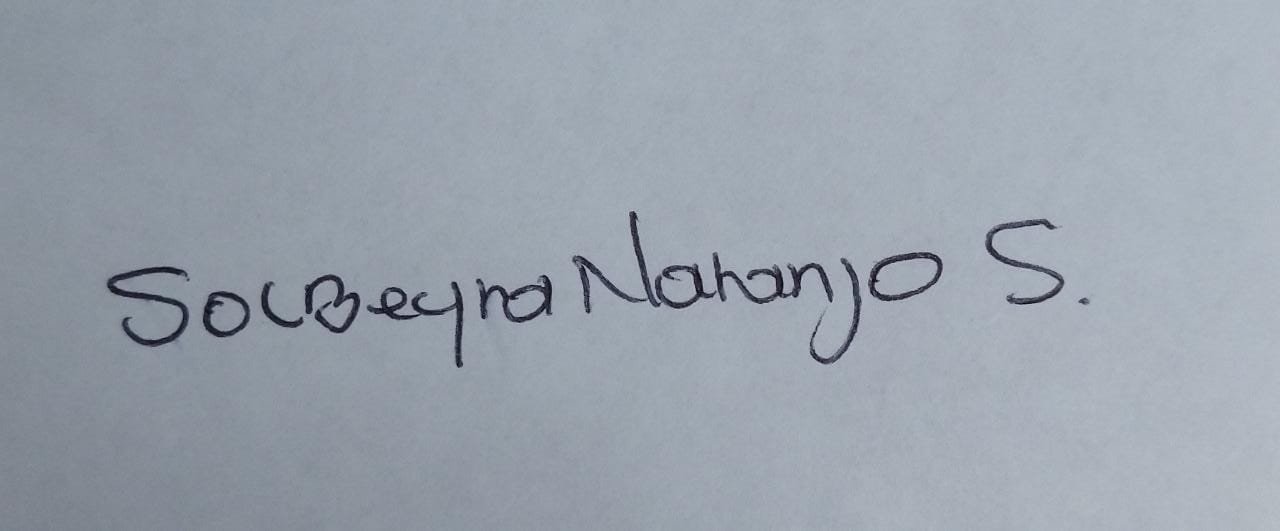 SolBeyra Naranjo S.